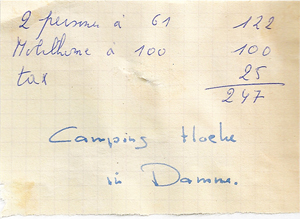 2 personen à 61 122
Mobilhome à 100 100
tax 25
247
Camping Hoeke
in Damme.